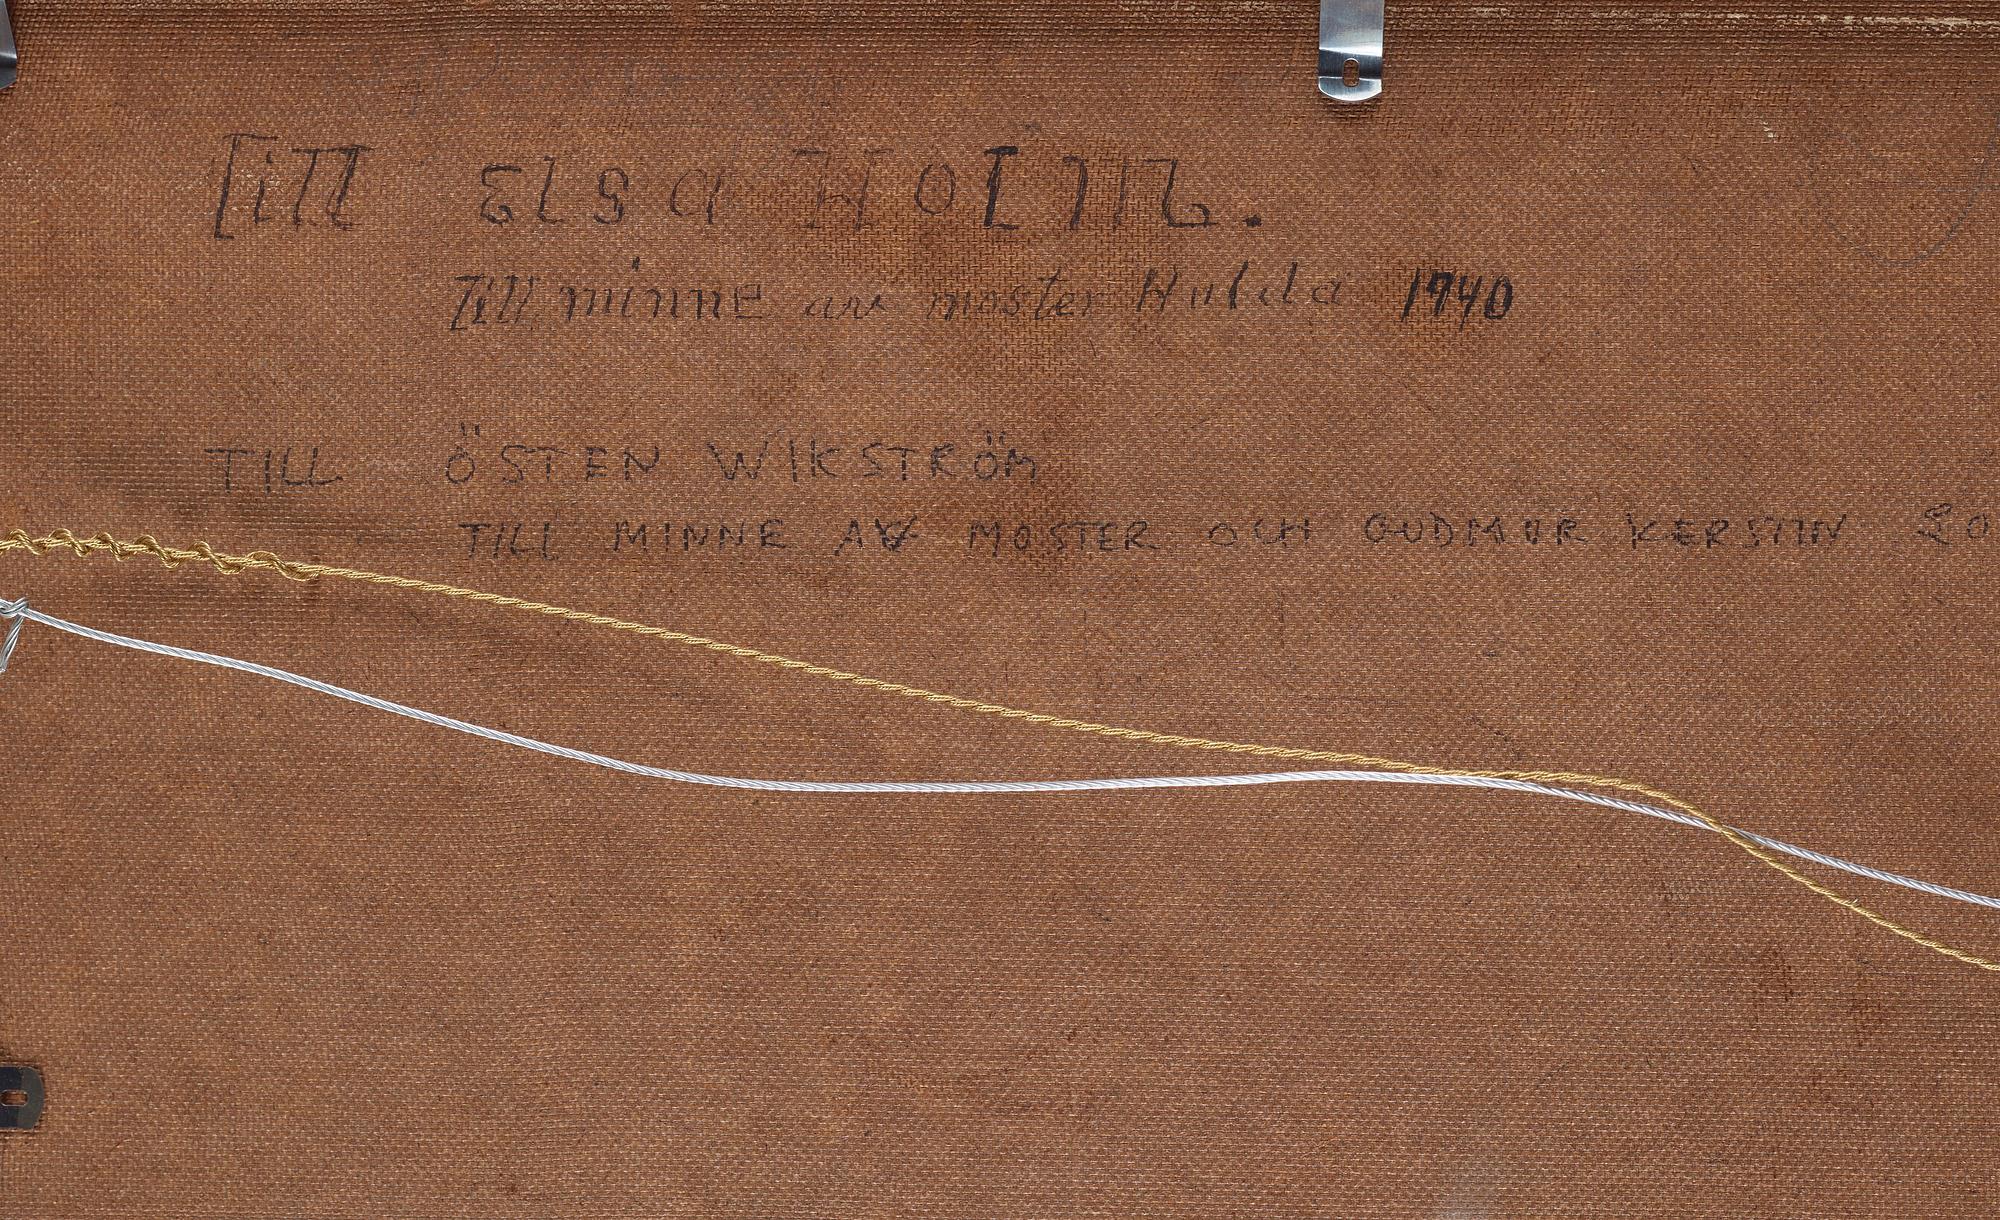 Till Elsa Holm.
Till minne av moster Hulda 1940
TILL ÖSTEN WIKSTRÖM
TILL MINNE AV MOSTER OCH GUDMOR KERSTIN 20